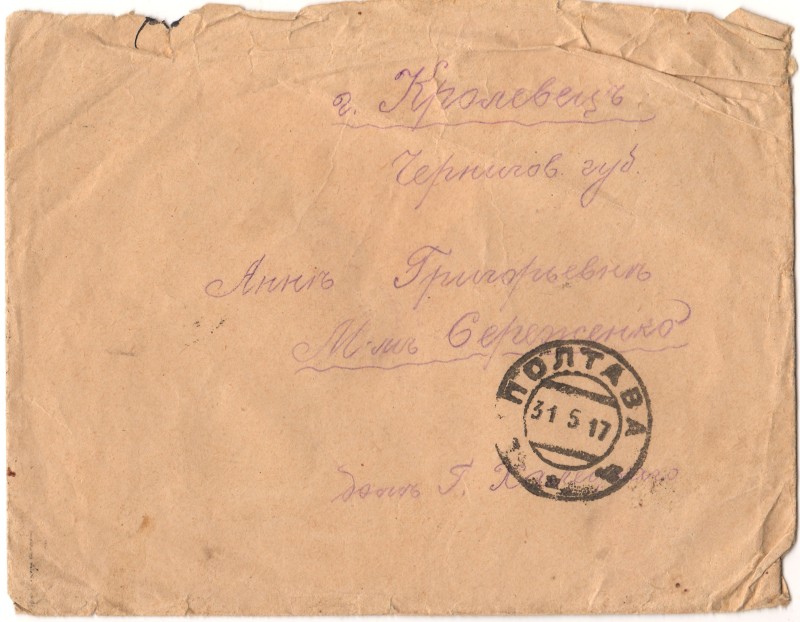 г. Кролевецъ.
Чернигов. губ.
Аннѣ Григорьевнѣ
М-мъ Сереженко
ПОЛТАВА
31 5 17
домъ Г.